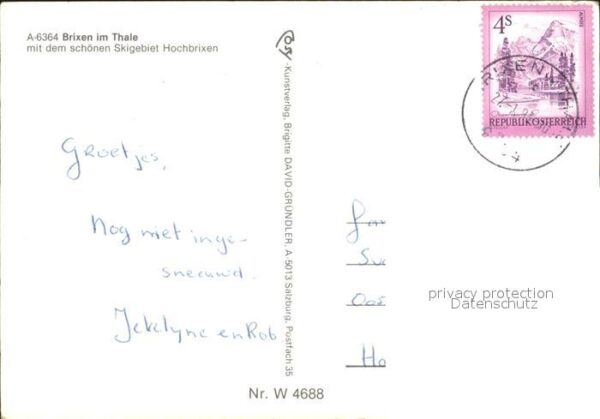 A-6364 Brixen im Thale
mit dem schönen Skigebiet Hochbrixen
Groetjes,
Nog niet inge-
sneeuwd.
Jekelyne en Rob
-Kunstverlag, Brigitte DAVID-GRÜNDLER, A-5013 Salzburg, Postfach 35
4S
ALMSEE
REPUBLIK ÖSTERREICH
Su
Oos
Ho
privacy protection
Datenschutz
Nr. W 4688